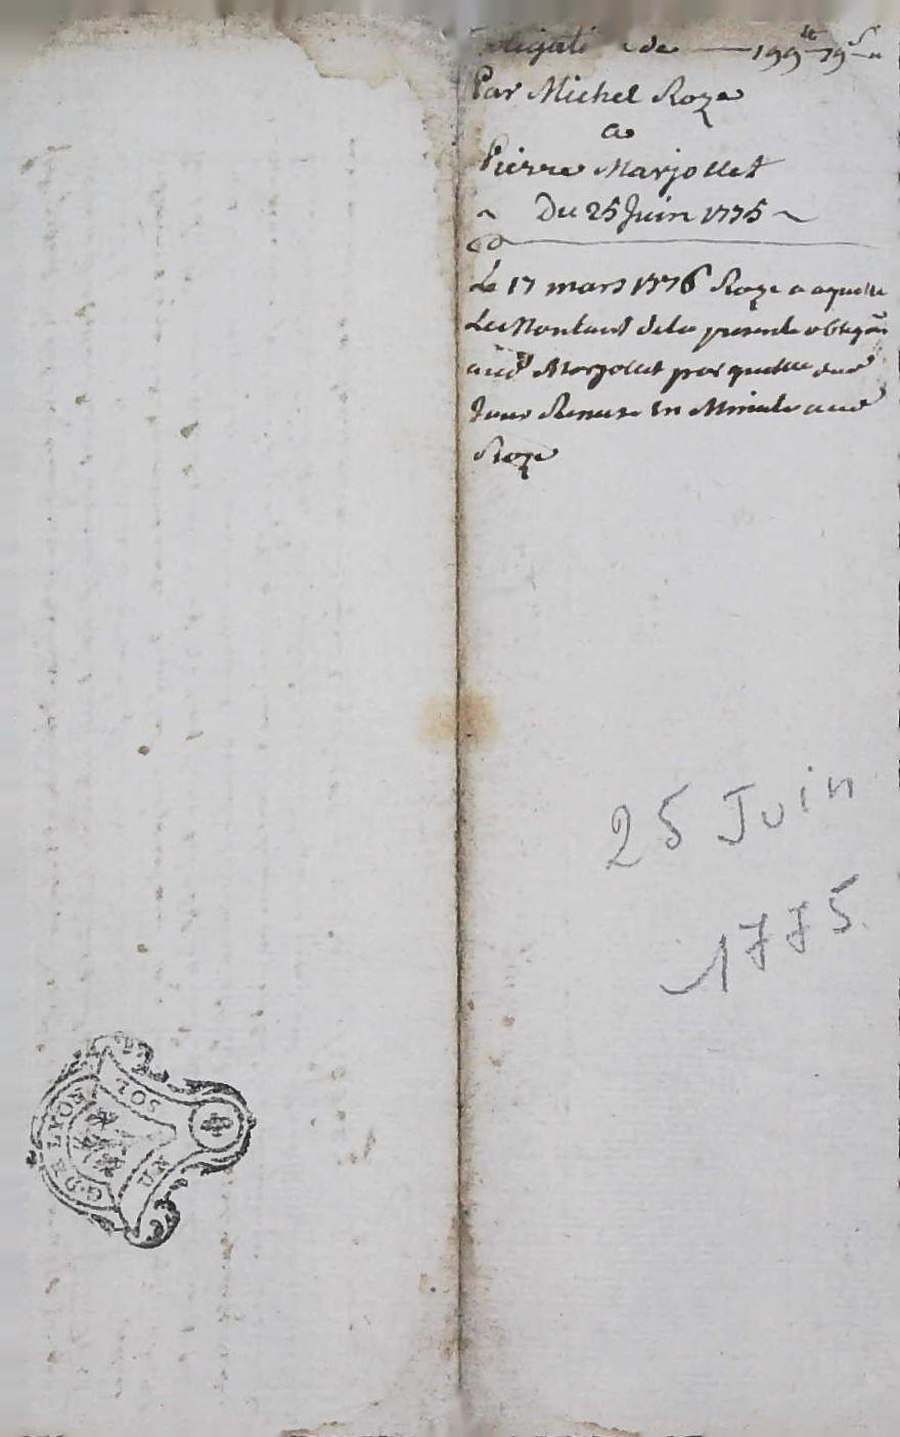 de 199 19
Par Michel Roze
a
Pierre Marjollet
Du 25 Juin 1775
Le 17 mars 1776 Roze a aquitté
Le Montant dela presente obligon
aud Marjollet par quitt
Jour Remise en Minute aud
Roze
25 Juin
1775
UN
SOL
GDE LYON